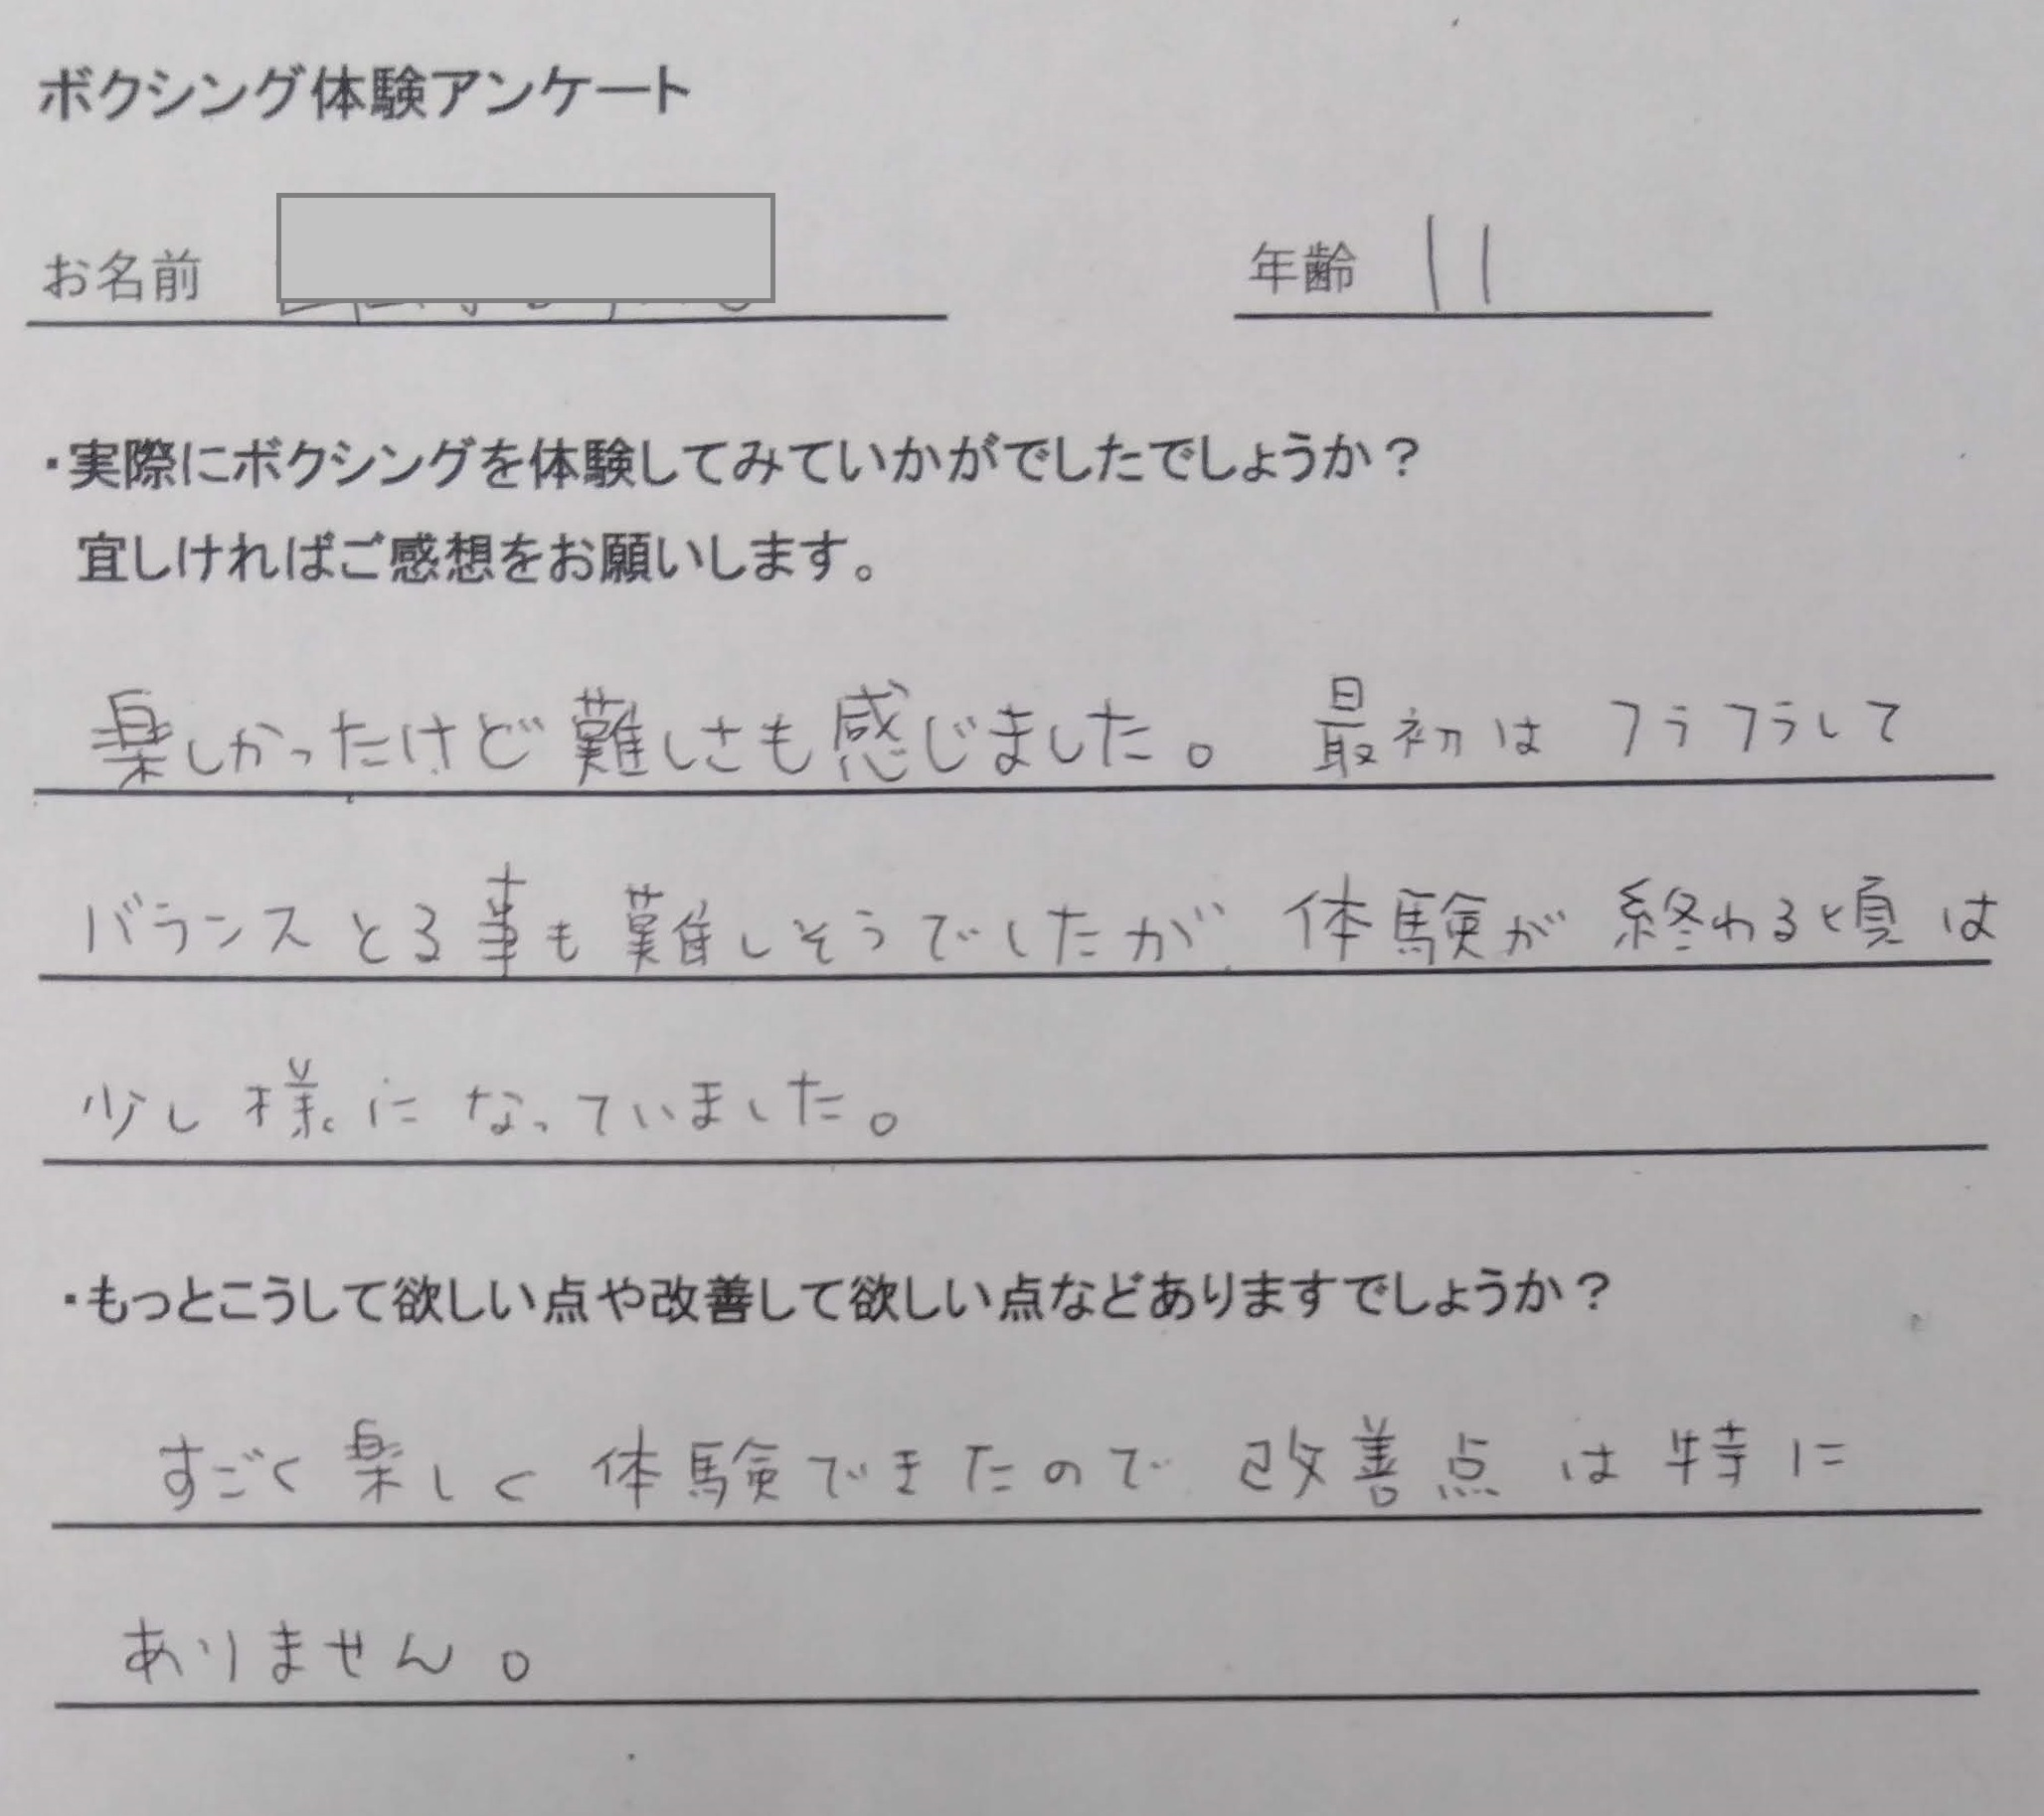 ボクシング体験アンケート
お名前 年齢 11
・実際にボクシングを体験してみていかがでしたでしょうか？
宜しければご感想をお願いします。
楽しかったけど難しさも感じました。最初はフラフラして
バランスとる事も難しそうでしたが、体験が終わる頃は
少し様になっていました。
・もっとこうして欲しい点や改善して欲しい点などありますでしょうか？
すごく楽しく体験できたので改善点は特に
ありません。